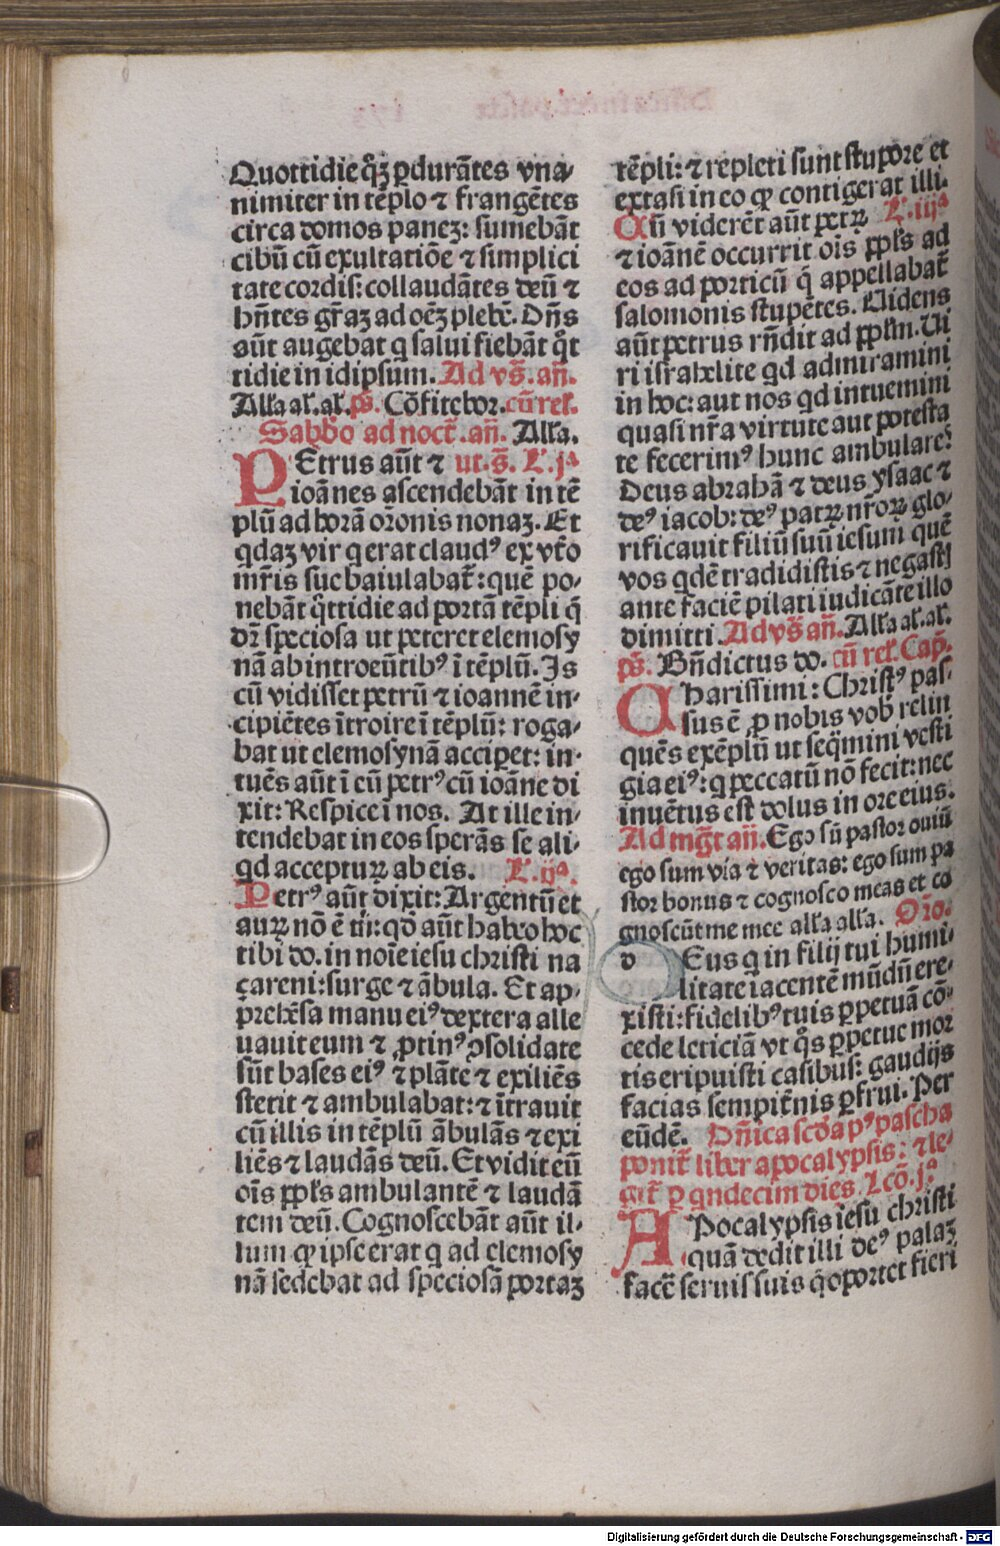 Quottidie q̄ꝫ ꝑdurātes vna/
nimiter in tēplo ⁊ frangētes
circa domos paneꝫ: sumebāt
cibū cū exultatiōe ⁊ simplici
tate cordis: collaudātes deū ⁊
hn̄tes gr̄aꝫ ad oēꝫ plebē. Dn̄s
aūt augebat q salui fiebāt q̄t
tidie in idipsum. Ad vs̄. an̄.
Allā al̄. al̄. ps̄. Cōfitebor. cū rel̄.
Sabb̄o ad noct̄. an̄. Allā.
PEtrus aūt ⁊ ut. s̄. L̄. jᵃ
ioānes ascendebāt in tē
plū ad horā or̄onis nonaꝫ. Et
qdaꝫ vir q erat claudꝰ ex vt̄o
mr̄is sue baiulabat̄: quē po/
nebāt q̄ttidie ad portā tēpli q̄
dr̄ speciosa ut peteret elemosy
nā ab introeūtibꝰ ī tēplū. Is
cū vidisset petrū ⁊ ioannē in/
cipiētes ītroire ī tēplū: roga/
bat ut elemosynā acciꝑet: in/
tuēs aūt ī eū petrꝰ cū ioāne di
xit: Respice ī nos. At ille in/
tendebat in eos sperās se ali/
qd accepturꝝ ab eis. L̄. ijᵃ.
Petrꝰ aūt dixit: Argentū et
aurꝝ nō ē m̄: qd̄ aūt habeo hoc
tibi do. in noīe iesu christi na
çareni: surge ⁊ ābula. Et ap/
prehēsa manu eiꝰ dextera alle
uauit eum ⁊ ꝓtinꝰ ↄsolidate
sūt bases eiꝰ ⁊ plāte ⁊ exiliēs
stetit ⁊ ambulabat: ⁊ ītrauit
cū illis in tēplū ābulās ⁊ exi
liēs ⁊ laudās deū. Et vidit eū
oīs ppl̄s ambulantē ⁊ laudā
tem deū. Cognoscebāt aūt il/
lum ꝙ ipse erat q ad elemosy
nā sedebat ad speciosā portaꝫ
tēpli: ⁊ repleti sunt stupore et
extasi in eo ꝙ contigerat illi.
Cū viderēt aūt petrꝝ L̄. iijᵃ
⁊ ioānē occurrit oīs ppl̄s ad
eos ad porticū q̄ appellabat̄
salomonis stupētes. Uidens
aūt petrus rn̄dit ad ppl̄m. Ui
ri israhelite qd admiramini
in hoc: aut nos qd intuemini
quasi nr̄a virtute aut potesta
te fecerimꝰ hunc ambulare?
Deus abrahā ⁊ deus ysaac ⁊
deꝰ iacob: deꝰ patrꝝ nr̄oꝝ glo/
rificauit filiū suū iesum quē
vos qdē tradidistis ⁊ negastꝭ
ante faciē pilati iudicāte illo
dimitti. Ad vs̄ an̄. Allā al̄. al̄.
ps̄. Bn̄dictus do. cū rel̄. Cap̄.
CHarissimi: Christꝰ pas/
sus ē ꝓ nobis vob̄ relin
quēs exēplū ut seq̄mini vesti
gia eiꝰ: q peccatū nō fecit: nec
inuētus est dolus in ore eius.
Ad mḡt an̄. Ego sū pastor ouiū
ego sum via ⁊ veritas: ego sum pa
stor bonus ⁊ cognosco meas et co
gnoscūt me mee allā allā. Or̄o.
dEus q in filij tui humi/
litate iacentē mūdū ere/
xisti: fidelibꝰ tuis ꝑpetuā cō/
cede leticiā vt q̄s ꝑpetue mor
tis eripuisti casibus: gaudijs
facias sempit̄nis ꝑfrui. Per
eūdē. Dn̄ica scd̄a pꝰ pascha
ponit̄ liber apocalypsis: ⁊ le/
git̄ ꝑ qndecim dies. Lcō. jᵃ
APocalypsis iesu christi
quā dedit illi deꝰ palaꝫ
facē seruis suis q̄ oportet fieri
Digitalisierung gefördert durch die Deutsche Forschungsgemeinschaft - DFG